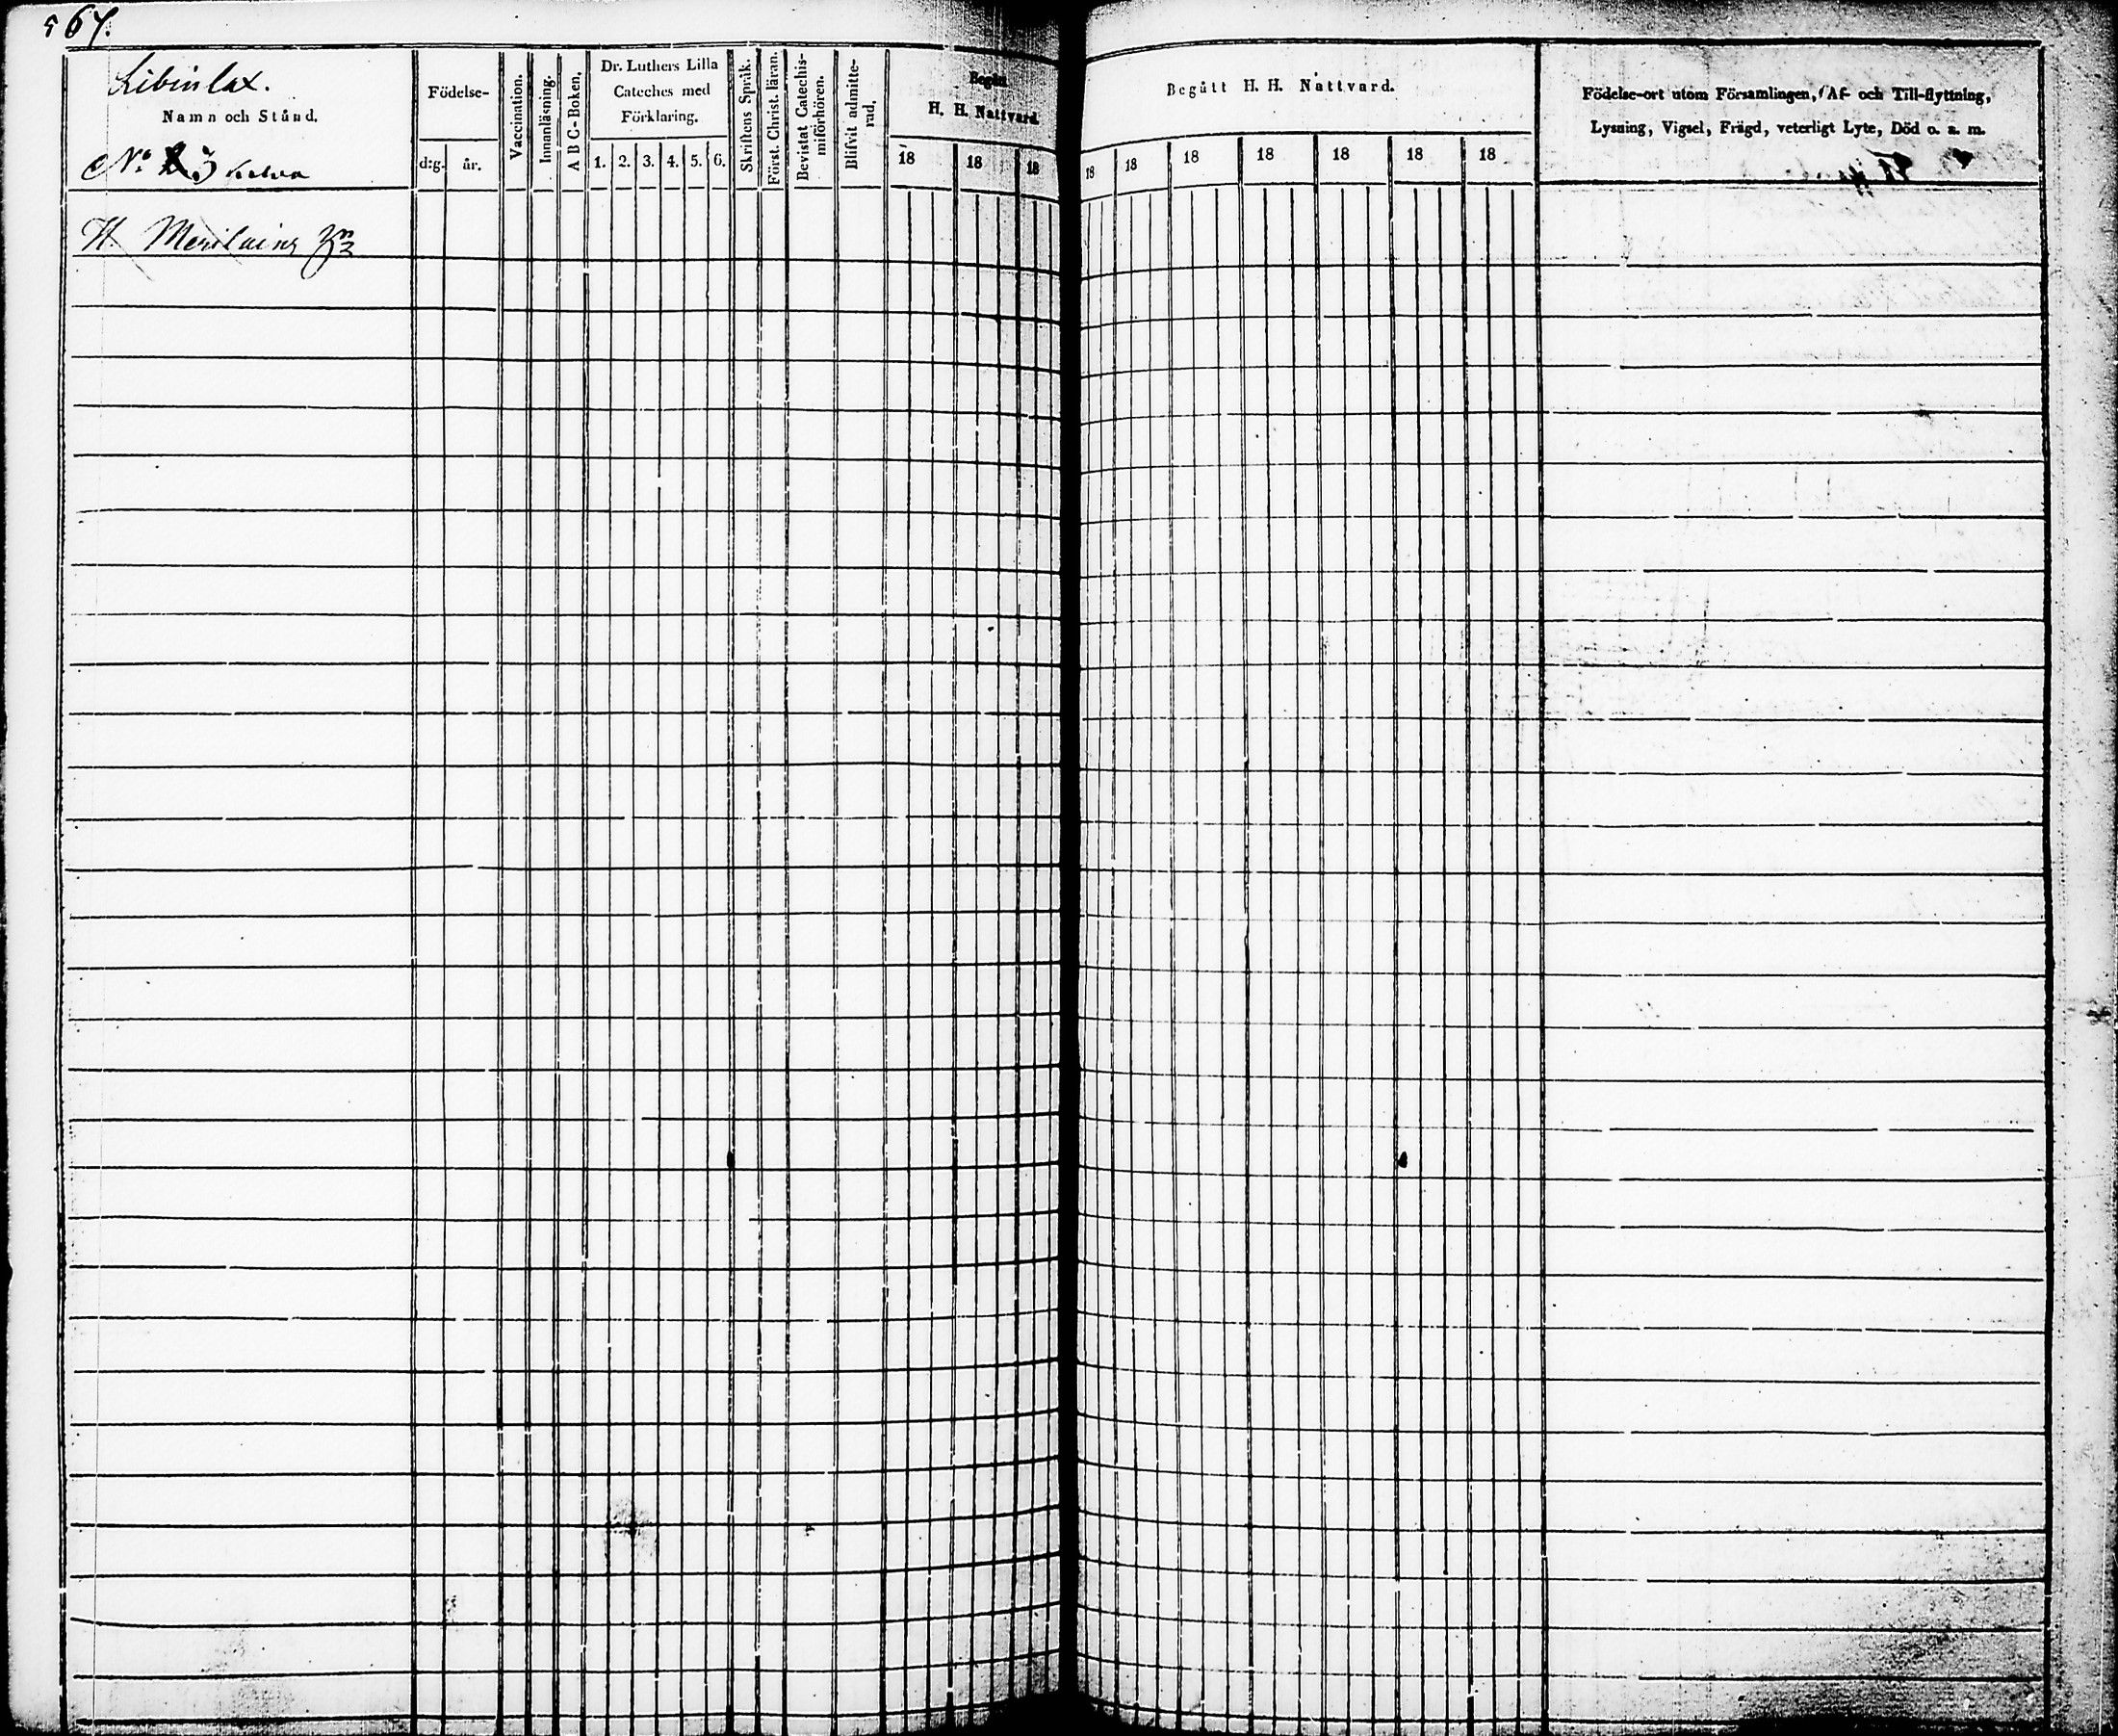 567.
Libinlax.
Namn och Stånd.
No 3
H Meriläine
Födelse-
d:g. år.
Vaccination.
Innanläsning.
A B C-Boken,
Dr. Luthers Lilla
Cateches med
Förklaring.
1. 2. 3. 4. 5. 6.
Skriftens Språk.
Först. Christ. läran.
Bevistat Catechis-
miförhören.
Blifvit admitte-
rad.
Begått
H. H. Nattvard
18 18 18
Begått H. H. Nattvard.
18 18 18 18 18 18 18
Födelse-ort utom Församlingen, Af- och Till-flyttning,
Lysning, Vigsel, Frägd, veterligt Lyte, Död o. s. m.